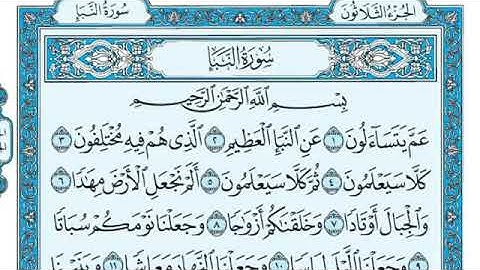 الجزء الثلاثون
سورة النبأ
سُورَةُ النَّبَإِ
بِسْمِ اللَّهِ الرَّحْمَٰنِ الرَّحِيمِ
عَمَّ يَتَسَاءَلُونَ ١ عَنِ النَّبَإِ الْعَظِيمِ ٢ الَّذِي هُمْ فِيهِ مُخْتَلِفُونَ ٣
كَلَّا سَيَعْلَمُونَ ٤ ثُمَّ كَلَّا سَيَعْلَمُونَ ٥ أَلَمْ نَجْعَلِ الْأَرْضَ مِهَادًا ٦
وَالْجِبَالَ أَوْتَادًا ٧ وَخَلَقْنَاكُمْ أَزْوَاجًا ٨ وَجَعَلْنَا نَوْمَكُمْ سُبَاتًا
٩ وَجَعَلْنَا اللَّيْلَ لِبَاسًا ١٠ وَجَعَلْنَا النَّهَارَ مَعَاشًا ١١ وَبَنَيْنَا